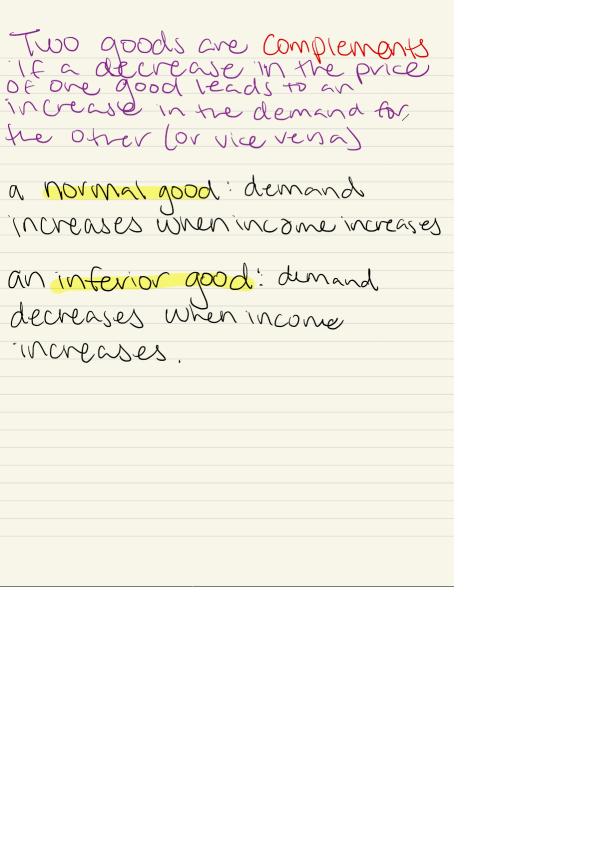 Two goods are complements
if a decrease in the price
of one good leads to an
increase in the demand for
the other (or vice versa)
a normal good: demand
increases when income increases
an inferior good: demand
decreases when income
increases.